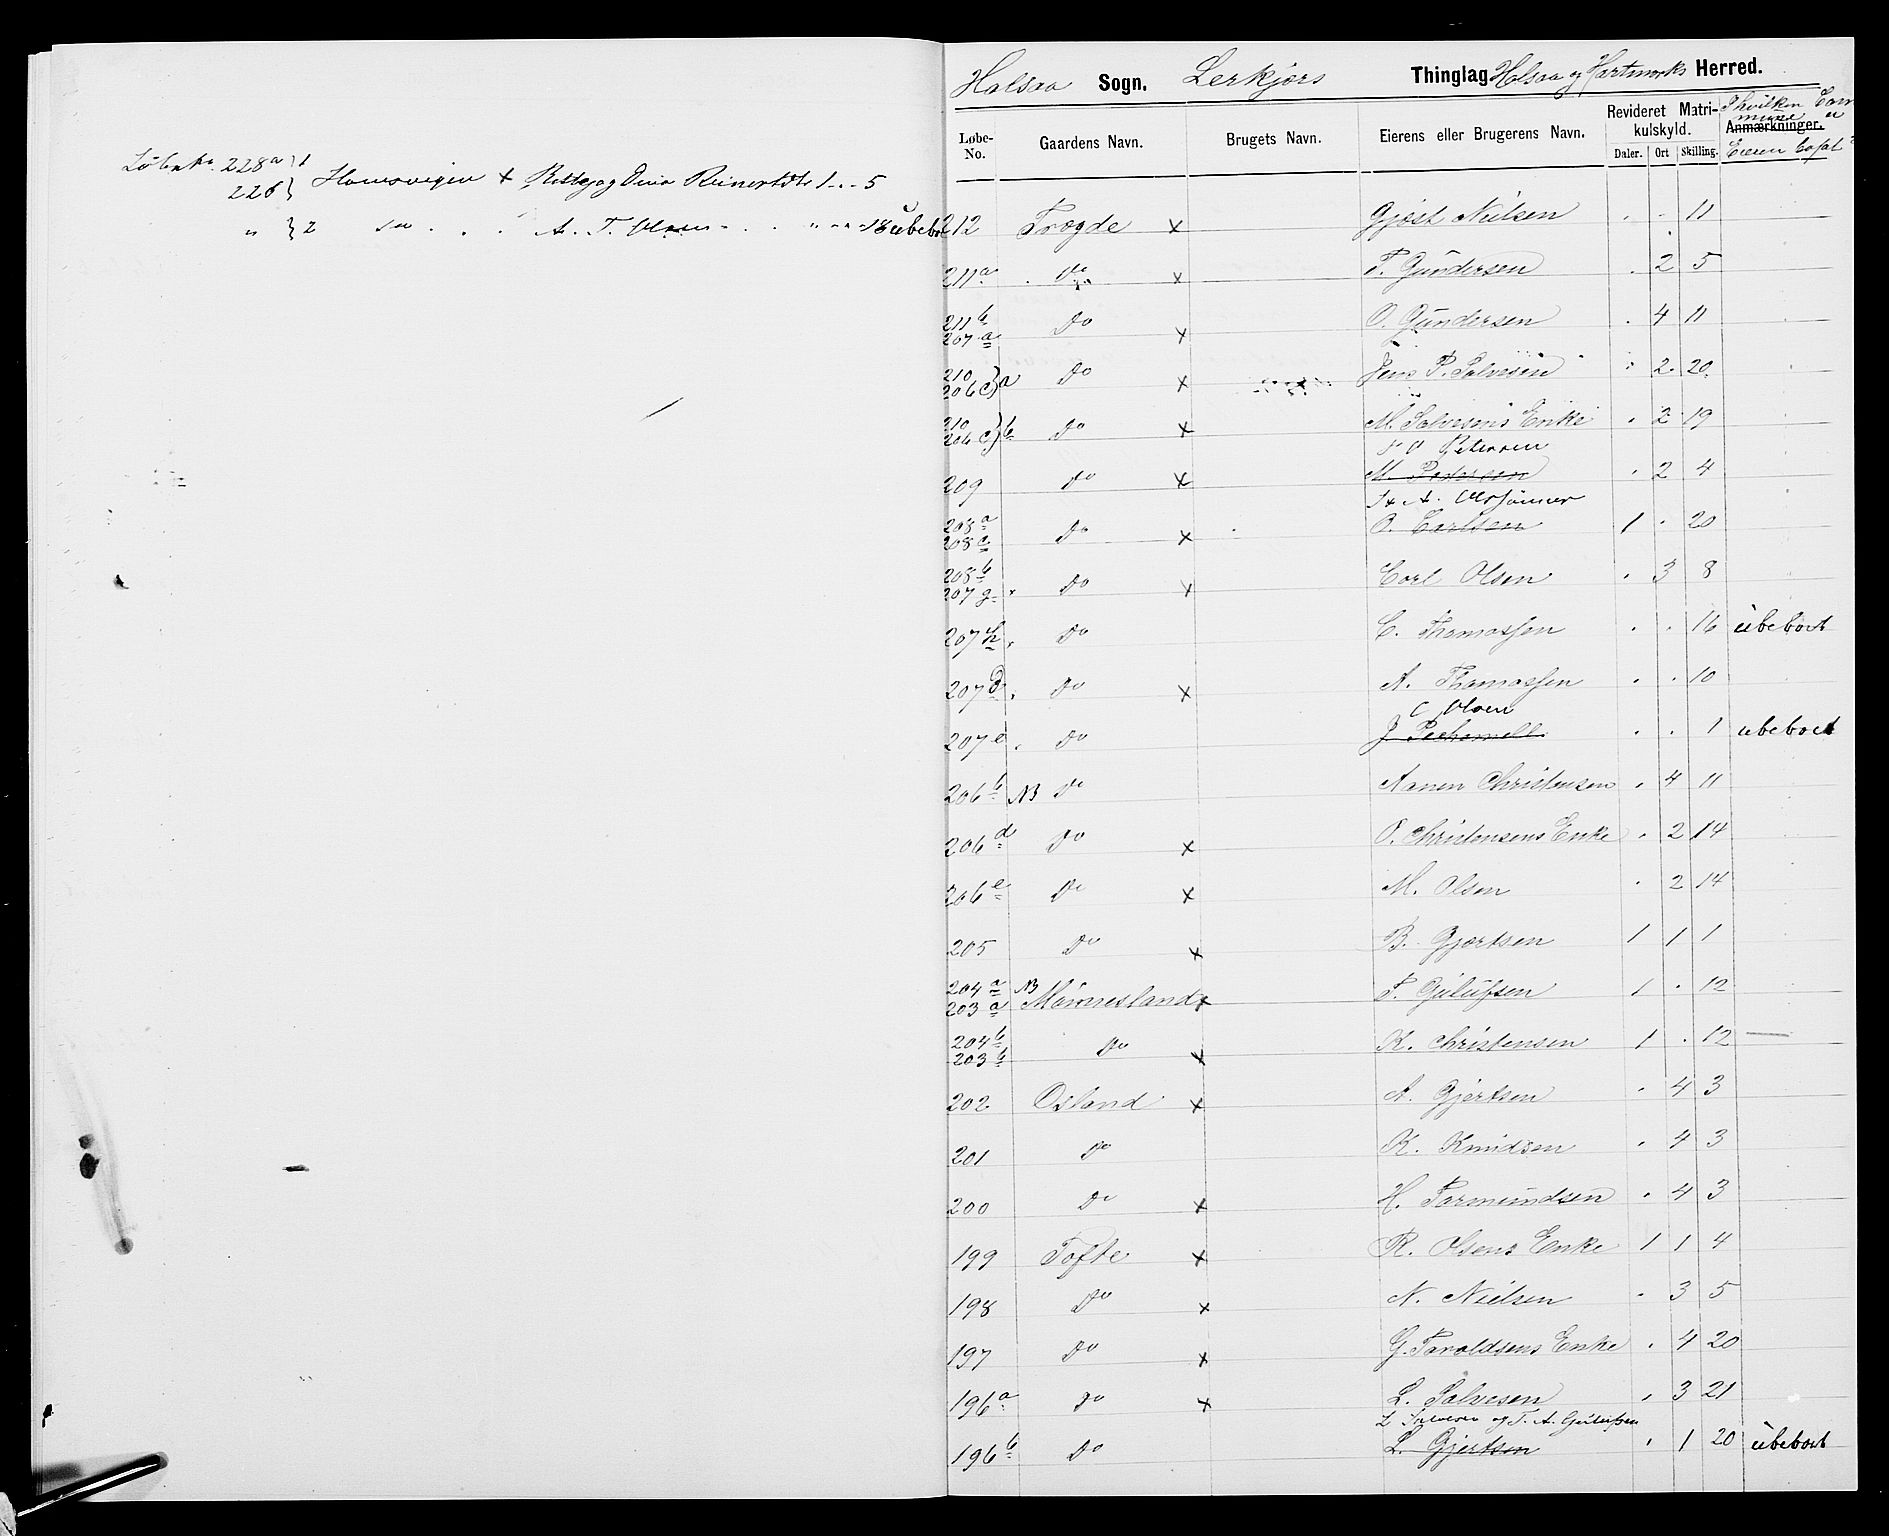 Løbnr. 228a } 1
228 } Homsvigen x Rettej og Dina Reinertsdtr 1 - . - 5
" } 2 do . . . A. T. Olsen - . . " - - - 18 übeboet
Halsaa Sogn. Lerkjærs Thinglag Halsaa og Hartmarks Herred.
Løbe-No. Gaardens Navn. Brugets Navn. Eierens eller Brugerens Navn. Revideret Matrikulskyld. Daler. Ort Skilling. Anmærkninger.
I hvilken Commune er Eieren bosat?
212 Trægde x Gjøst Nielsen . . 11
211a . Do x T. Gundersen . 2 5
211b 207a Do x O. Gundersen . 4 11
210 206c } a Do x Jens P. Salvesen . 2 20
210 206c } b Do x M. Salvesens Enke . 2 19
Petersen
209 Do x M. Pedersen . 2 4
208a 208c Do x O. Carlsen 1 . 20
208b 207g . Do x Carl Olsen . 3 8
207h . Do C. Thomassen . . 16 übeboet
207d . Do x A. Thomassen . . 10
C Olsen
207e . Do J. Pechamell . . 1 ubeboet
206b NB Do Aanen Christensen . 4 11
206d Do x O. Christensens Enke . 2 14
206e Do x M. Olsen . 2 14
205 Do x B. Gjertsen 1 1 1
204a 203a NB Mannesland x T. Gulufsen 1 . 12
204b 203b Do x K. Christensen 1 . 12 —
202 Osland x A. Gjertsen . 4 3
201 Do K. Knudsen . 4 3
200 Do x H. Tormundsen . 4 3
199 Tofte x R. Olsens Enke 1 1 4
198 Do x N. Nielsen . 3 5
197 Do x G. Taraldsens Enke . 4 20
196a Do x L. Salvesen . 3 21
L Salvesen og T. A. Gulufsen
196b Do L. Gjertsen . 1 20 übeboet